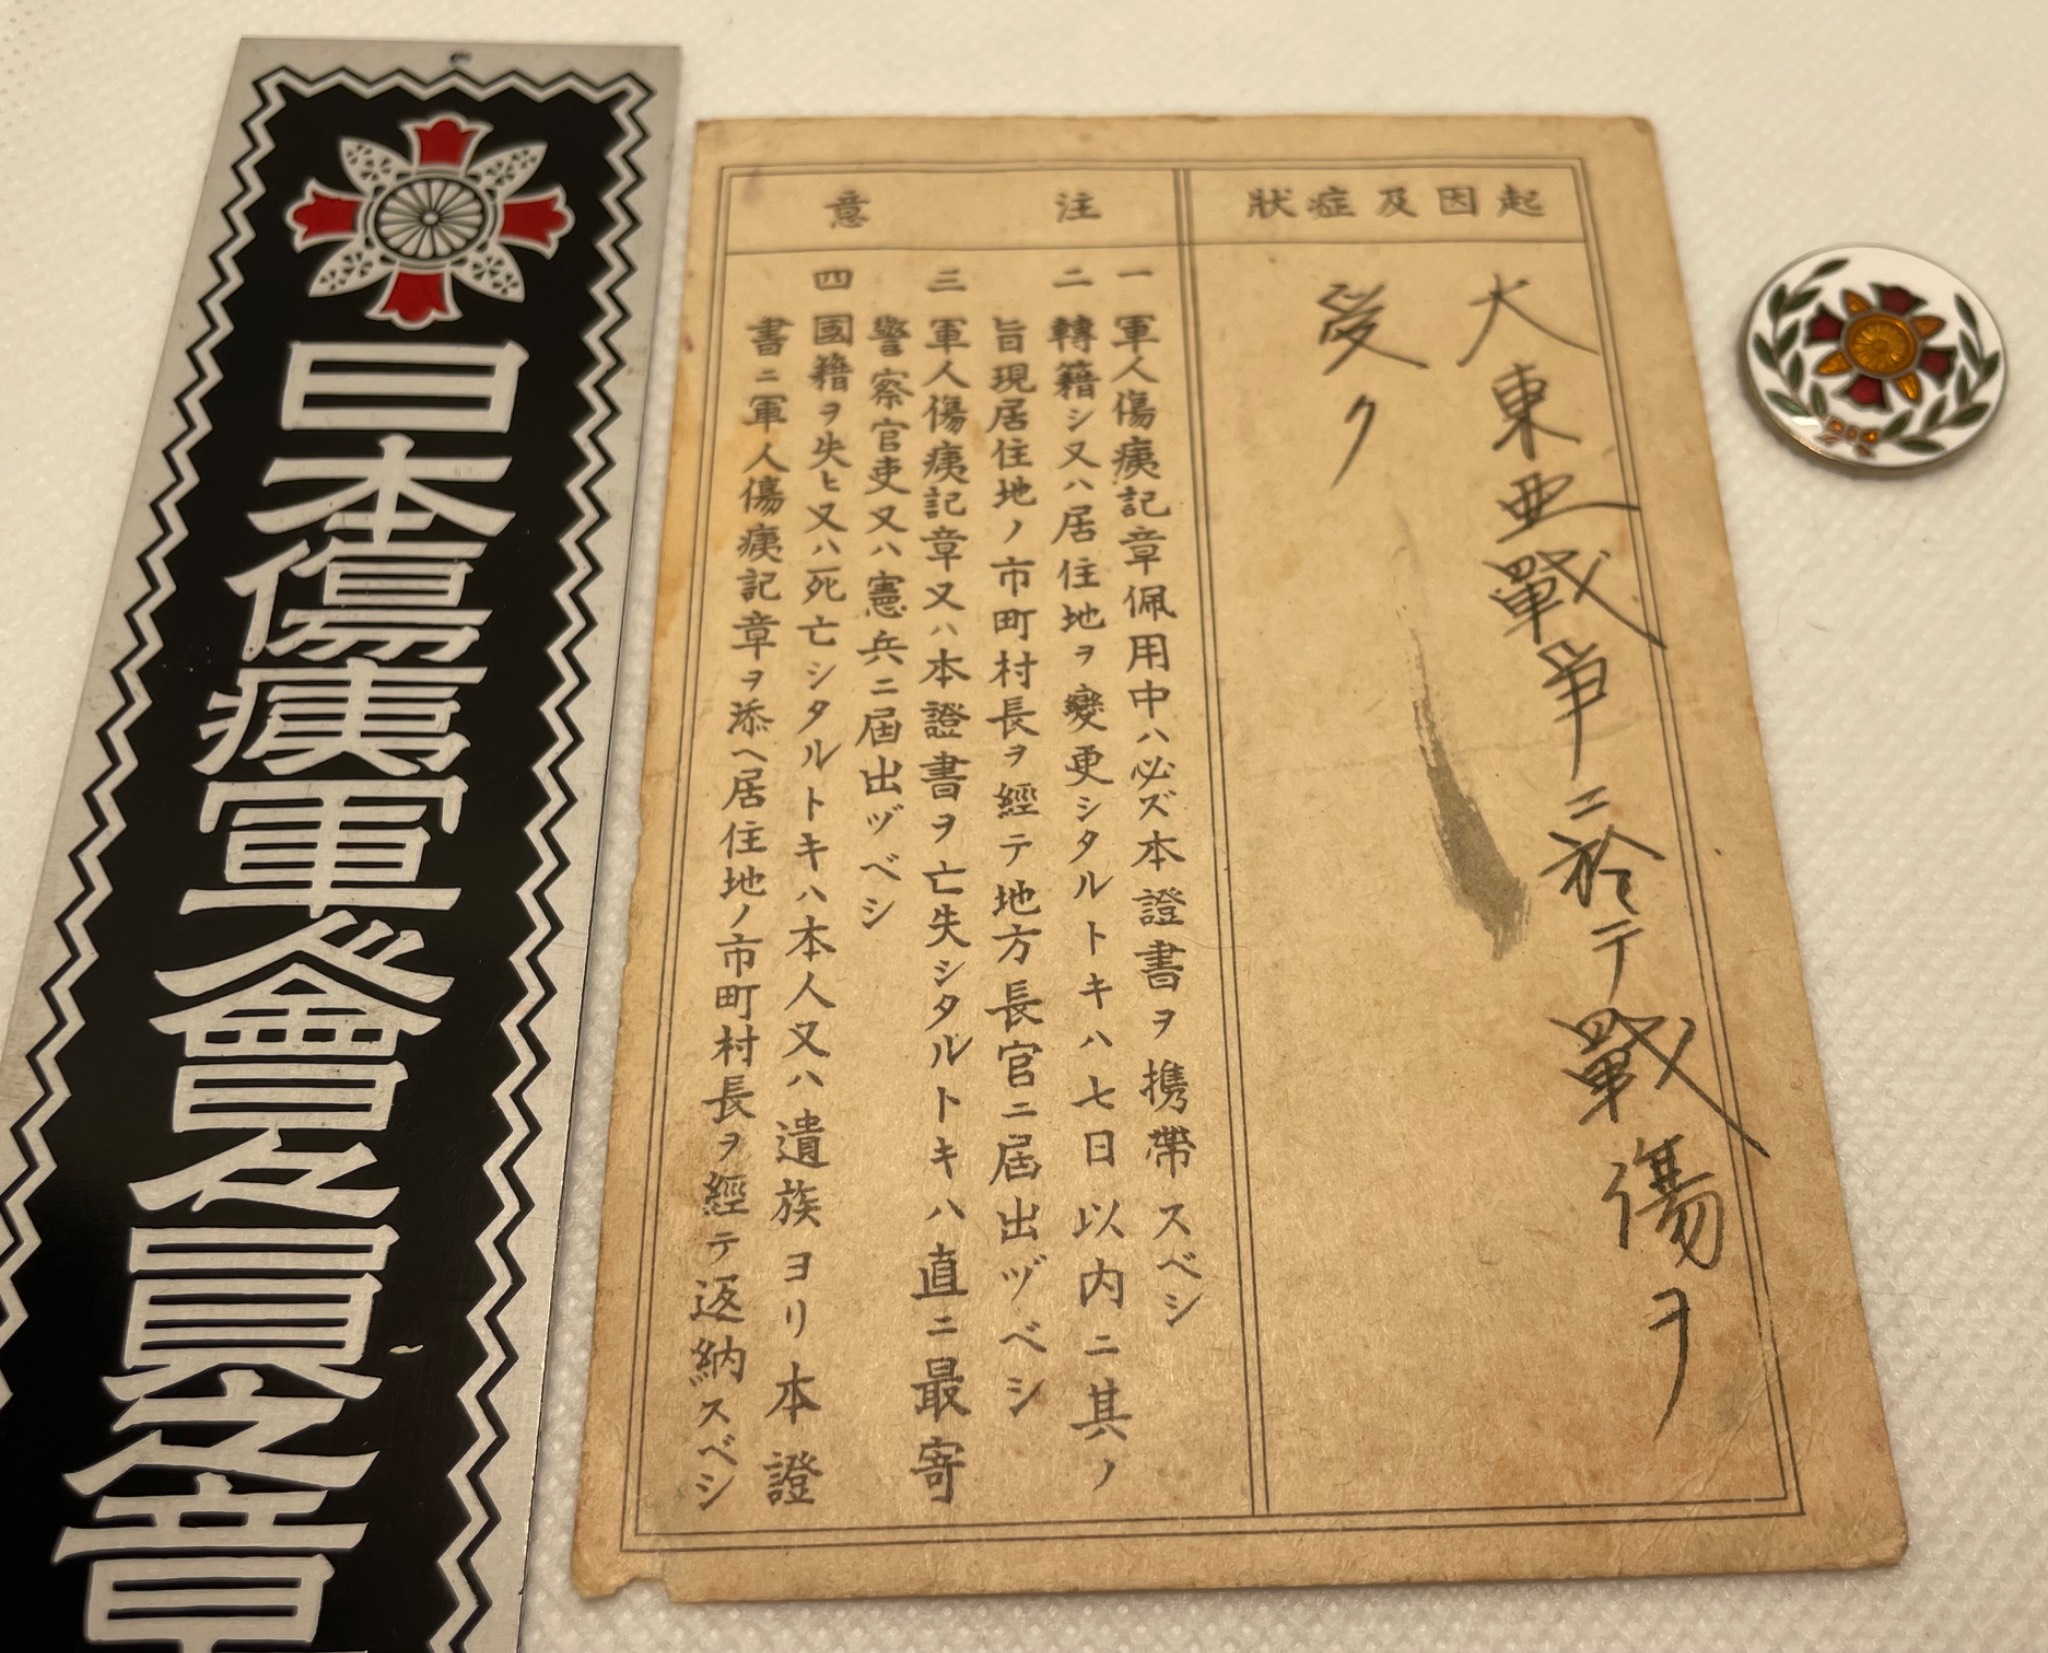 日本傷痍軍人會會員之章
起因及症狀
大東亜戰争ニ於テ戰傷ヲ
受ク
注意
一 軍人傷痍記章佩用中ハ必ズ本證書ヲ携帶スベシ
二 轉籍シ又ハ居住地ヲ變更シタルトキハ七日以内ニ其ノ
旨現居住地ノ市町村長ヲ經テ地方長官ニ屆出ヅベシ
三 軍人傷痍記章又ハ本證書ヲ亡失シタルトキハ直ニ最寄
警察官吏又ハ憲兵ニ屆出ヅベシ
四 國籍ヲ失ヒ又ハ死亡シタルトキハ本人又ハ遺族ヨリ本證
書ニ軍人傷痍記章ヲ添ヘ居住地ノ市町村長ヲ經テ返納スベシ